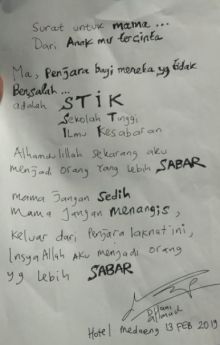 Surat untuk mama ...
Dari Anak mu tercinta
Ma, Penjara bagi mereka yg tidak
Bersalah ...
adalah STIK
Sekolah Tinggi
Ilmu Kesabaran
Alhamdulillah sekarang aku
menjadi orang yang lebih SABAR
mama jangan sedih
mama jangan menangis,
keluar dari penjara laknat ini,
Insya Allah aku menjadi orang
yg lebih SABAR
Dhani
Ahmad
Hotel Medaeng 13 FEB 2019